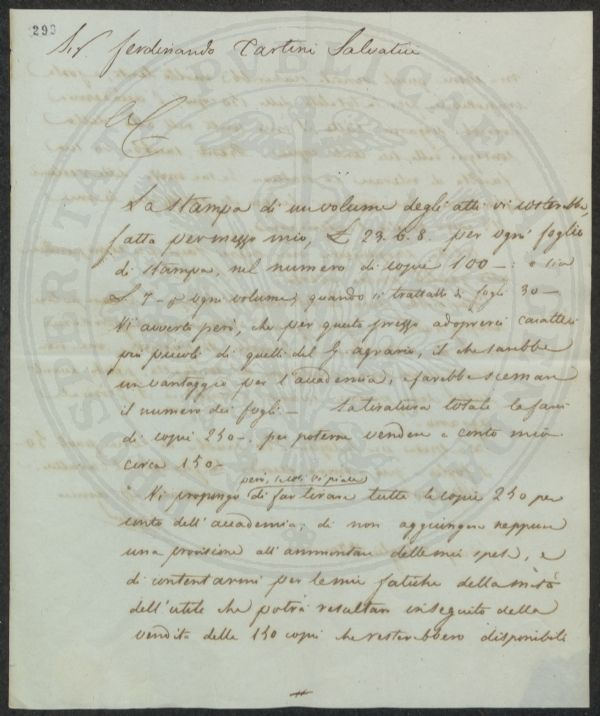 293
Sig.r Ferdinando Tartini Salvatici
La stampa di un volume degli atti vi costerebbe,
fatta per mezzo mio, £ 23. 6. 8. per ogni foglio
di stampa, nel numero di copie 100 –: o sia
£ 7 – ogni volume, quando si trattasse di fogli 30 –
Vi avverto però, che per questo prezzo adoprerei caratteri
più piccoli di quelli del G. agrario, il che sarebbe
un vantaggio per l'accademia, e farebbe scemare
il numero dei fogli – La tiratura totale la farei
di copie 250 –, per poterne vendere a conto mio
circa 150 –
però, se così vi piace
Vi propongo di far tirare tutte le copie 250 per
conto dell'accademia, di non aggiungere neppure
una provisione all'ammontare delle mie spese, e
di contentarmi per le mie fatiche della metà
dell'utile che potrà resultare in seguito della
vendita delle 150 copie che resterebbero disponibili